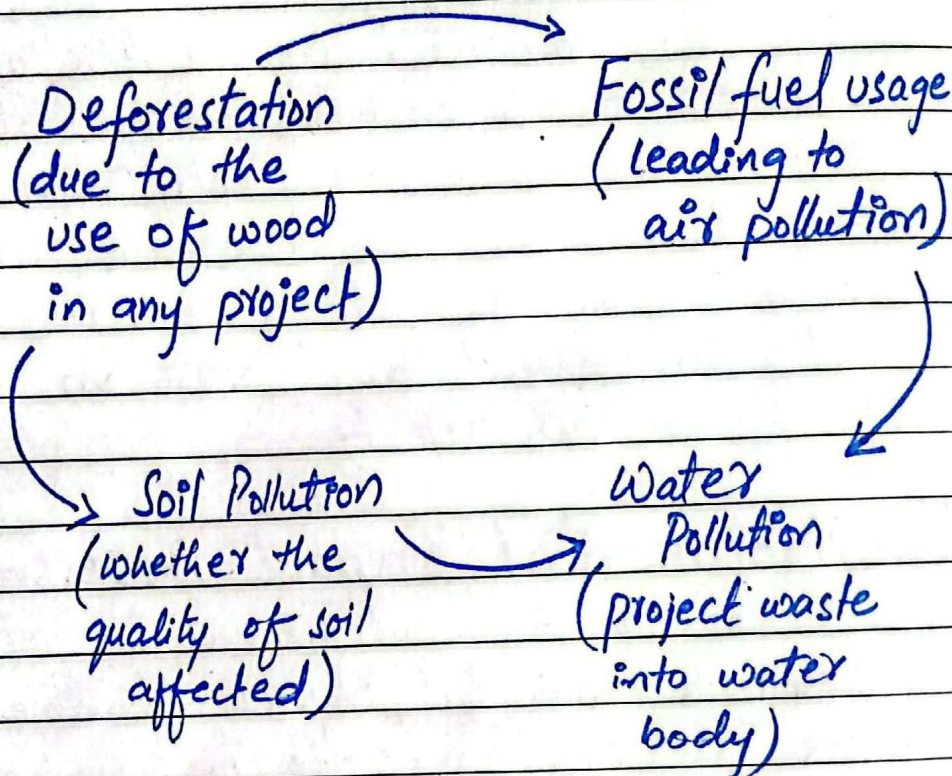 Deforestation
(due to the
use of wood
in any project)
Fossil fuel usage
(leading to
air pollution)
Soil Pollution
(whether the
quality of soil
affected)
Water
Pollution
(project waste
into water
body)